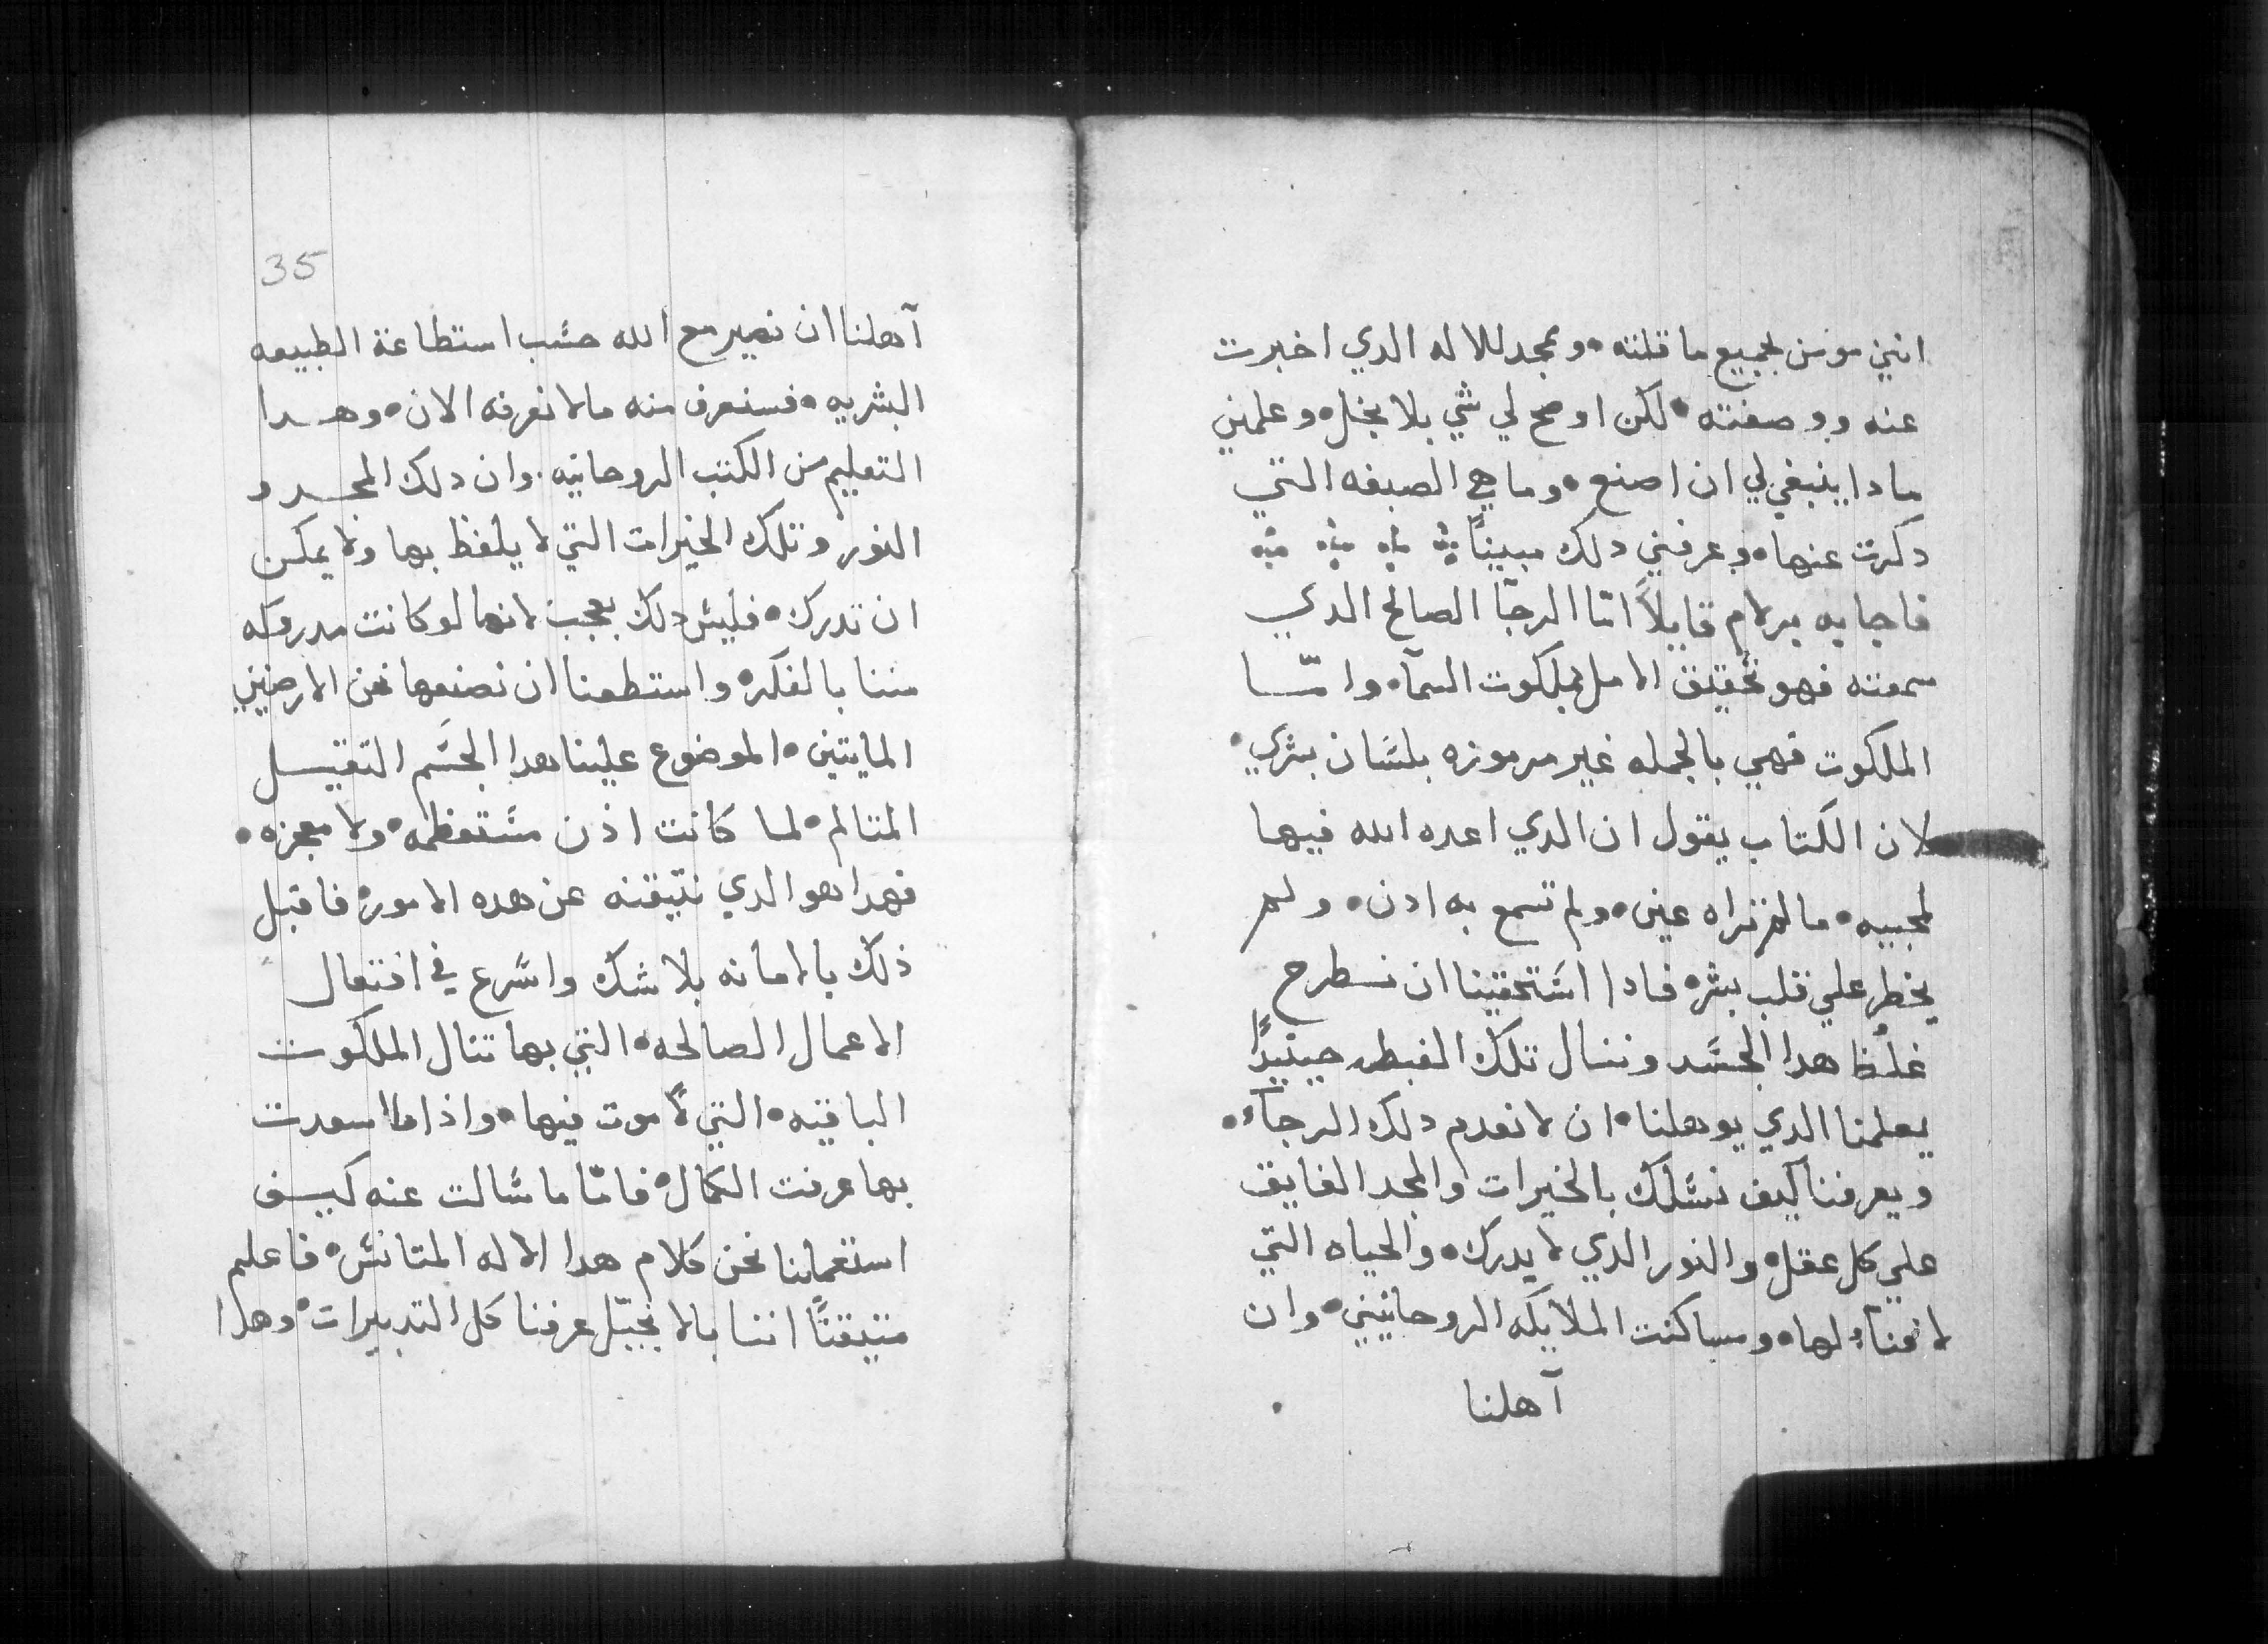 انني مومن بجميع ما قلته• وممجد للاله الدي اخبرت
عنه ووصفته• لكن اوضح لي شي بلا بخل• وعلمني
مادا ينبغي لي ان اصنع• وما هي الصبغه التي
دكرت عنها• وعرفني دلك مبيناً
فاجابه برلام قايلاً امّا الرجآ الصالح الدي
سمعته فهو تحقيق الامل بملكوت السمآ• وامّا
الملكوت فهي بالجمله غير مرموزه بلسَان بشري•
لان الكتاب يقول ان الدي اعده الله فيها
لمحبيه• مالم تراه عين• ولم تسمع به ادن• ولم
يخطر علي قلب بشر• فادا اسَتحقينا ان نطرح
غلُظ هدا الجسَد وننال تلك الغبطه حينيدًا
يعلمنا الدي يوهلنا• ان لا نعدم دلك الرجآء•
ويعرفنا كيف نسَلك بالخيرات والمجد الفايق
علي كل عقل• والنور الدي لا يدرك• والحياه التي
لا فنآء لها• ومساكنت الملايكه الروحانيين• وان
آهلنا
35
آهلنا ان نصير مع الله حسَب استطاعة الطبيعه
البشريه• فسنعرف منه مالا نعرفه الان• وهدا
التعليم من الكتب الروحانيه. وان دلك المجد و
النور وتلك الخيرات التي لا يلفظ بها ولا يمكن
ان تدرك• فليسَ دلك بعجب لانها لو كانت مدروكه
مننا بالفكر• واستطعنا ان نصنعها نحن الارضيين
المايتين• الموضوع علينا هدا الجسَم التقيل
المتالم• لما كانت اذن مسَتعظمه• ولا معجزه•
فهدا هو الدي نتيقنه عن هده الامور• فاقبل
ذلك بالامانه بلا شك واسَرع في افتعال
الاعمال الصالحه• التي بها تنال الملكوت
الباقيه• التي لا موت فيها• واذا ما اسعدت
بها عرفت الكمال• فامّا ما سَالت عنه كيف
استعمالنا نحن كلام هدا الاله المتانسَ• فاعلم
متيقنًا اننا بالانجيّل عرفنا كل التدبيرات• وهدا